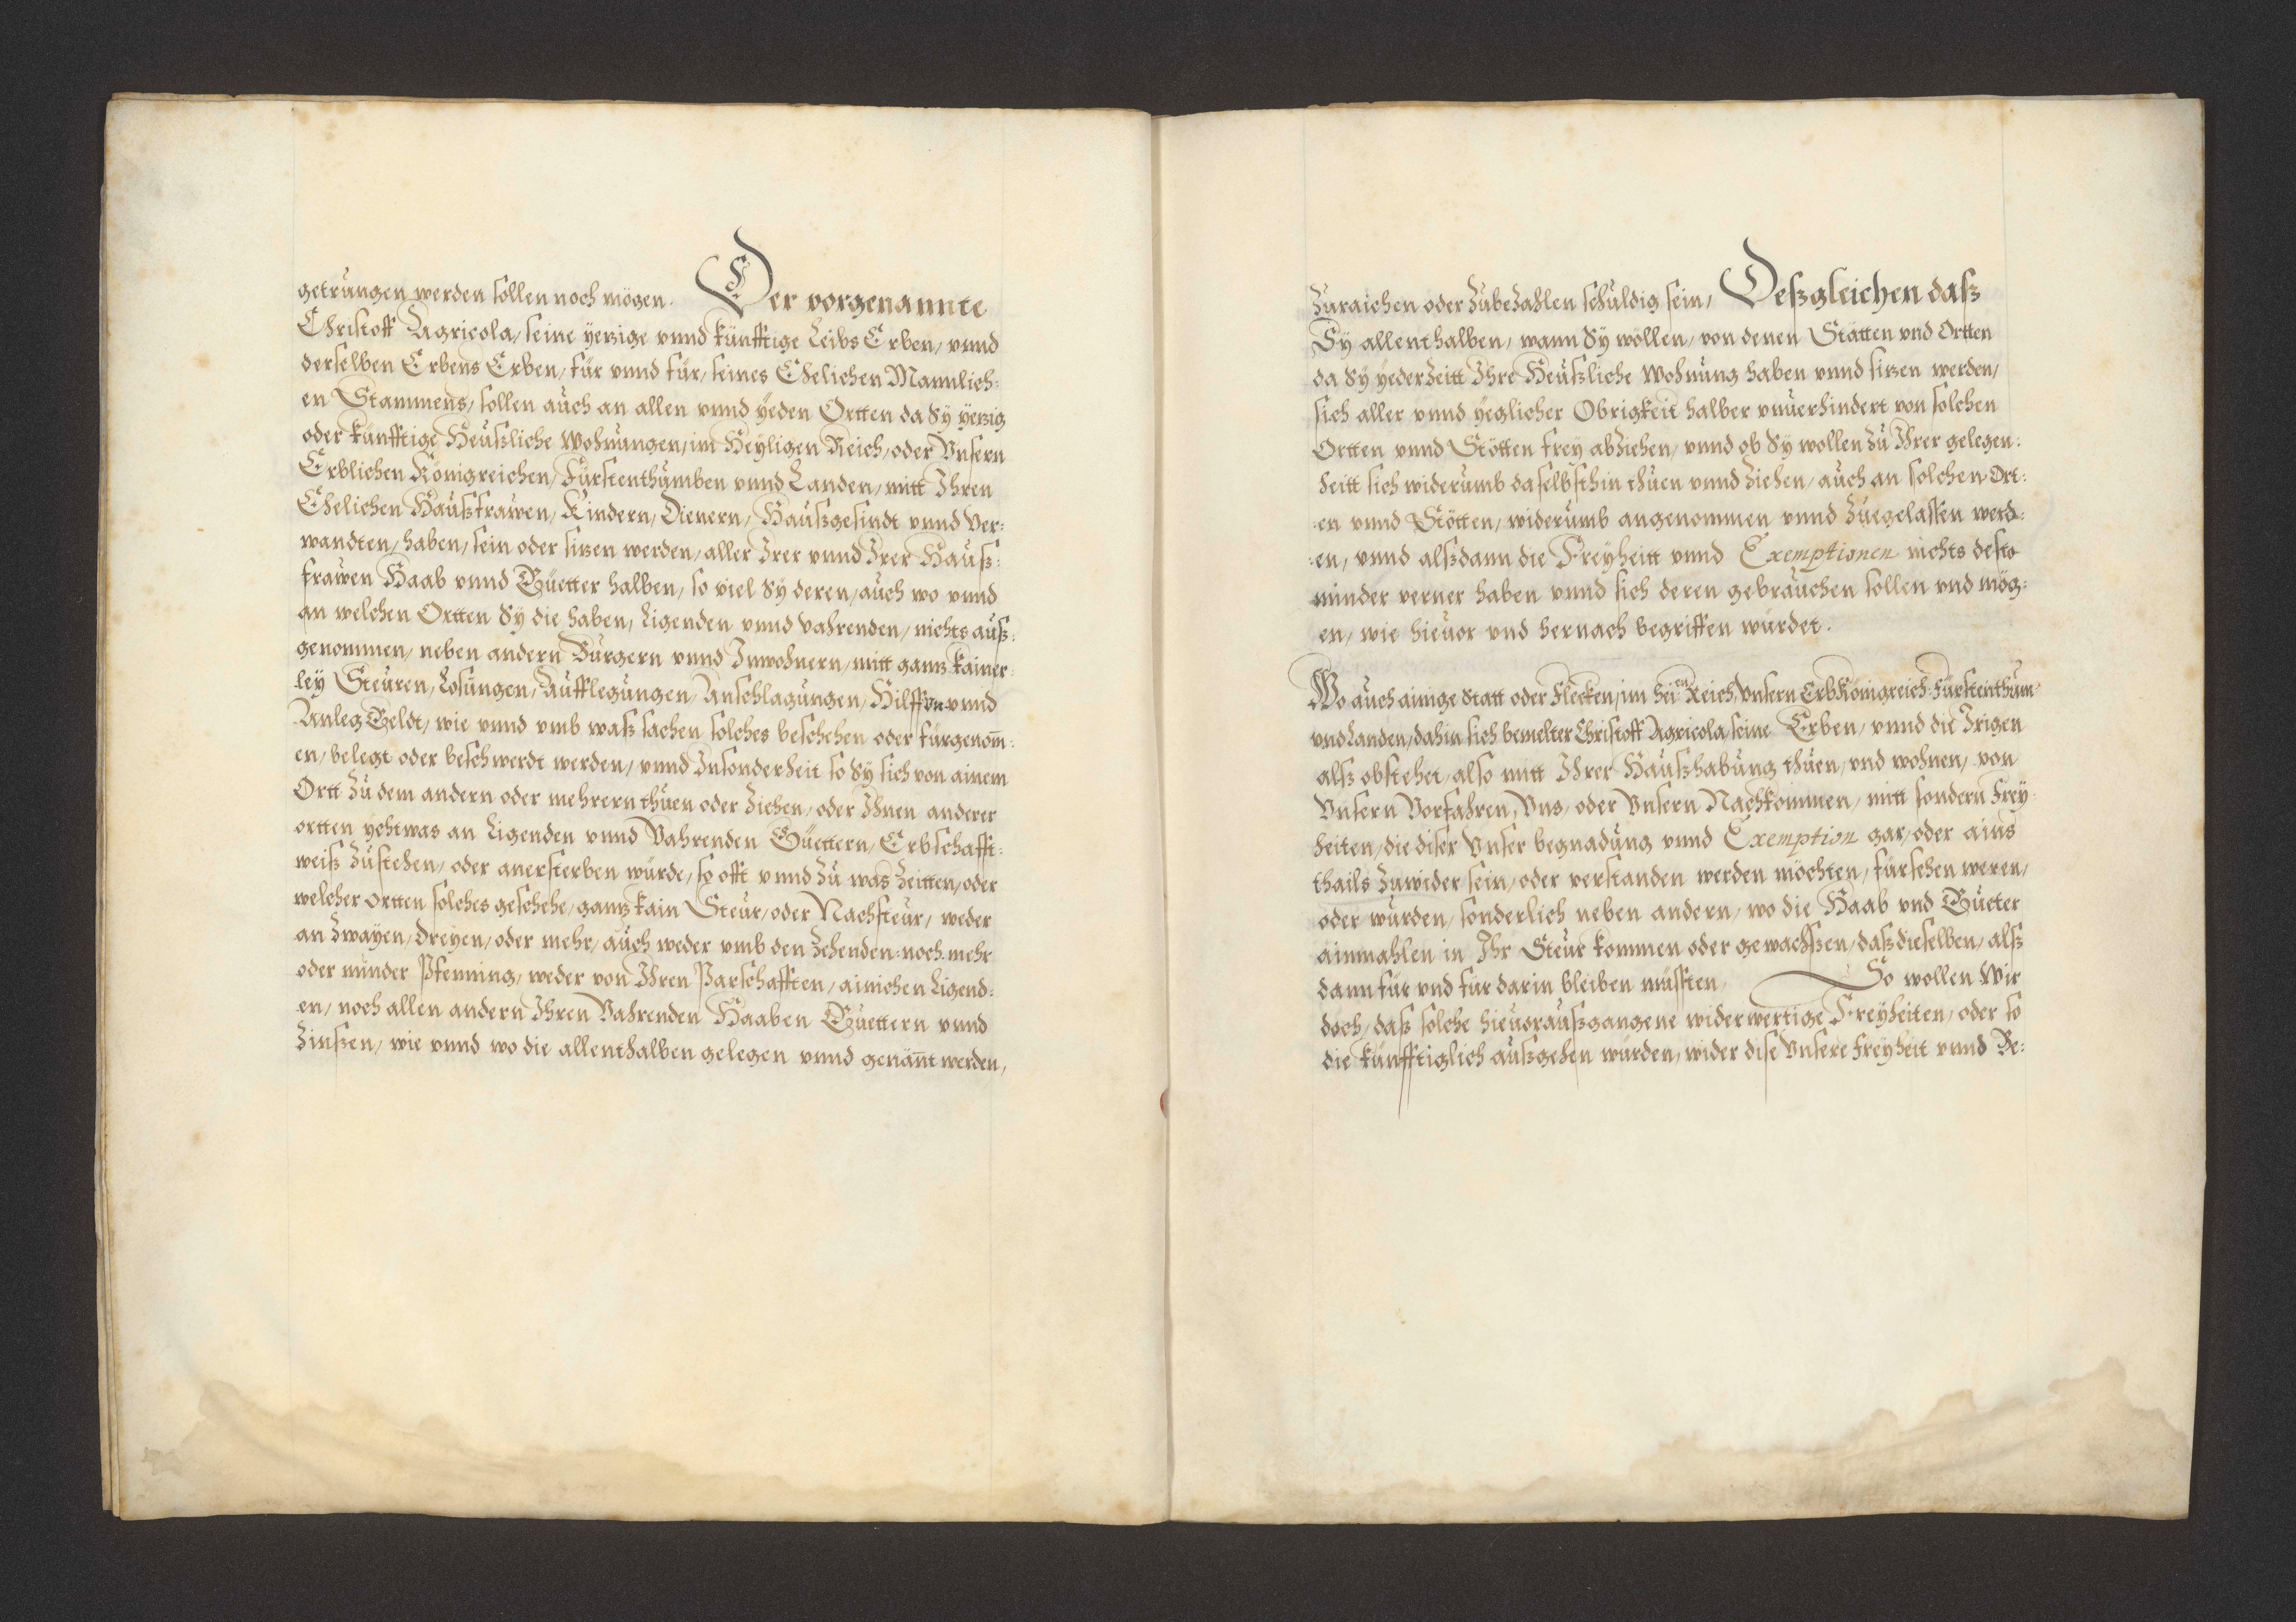 getrungen werden sollen noch mögen. Der vorgenannte
Christoff Agricola, seine yetzige vnnd künfftige Leibs Erben, vnnd
derselben Erbens Erben, für vnnd für, seines Ehelichen Mannlich:
en Stammens, sollen auch an allen vnnd yeden Ortten da Sÿ yetzig
oder künfftige Heüßliche Wohnungen, im Heyligen Reich, oder Vnsern
Erblichen Königreichen, Fürstenthumben vnnd Landen, mitt Ihren
Ehelichen Haußfrawen, Kindern, Dienern, Haußgesindt vnnd Ver:
wandten, haben, sein oder sitzen werden, aller Irer vnnd Irer Hauß:
frawen Haab vnnd Güetter halben, so viel Sÿ deren, auch wo vnnd
an welchen Ortten Sÿ die haben, Ligenden vnnd Vahrenden, nichts auß:
genommen, neben andern Burgern vnnd Inwohnern, mitt gantz kainer:
ley Steüren, Losungen, Aufflegungen, Anschlagungen, Hilffen vnnd
Anleg Geldt, wie vnnd vmb waß sachen solches beschehen oder fürgenom̄:
en, belegt oder beschwerdt werden, vnnd Insonderheit so Sÿ sich von ainem
Ortt zu dem andern oder mehrern thuen oder ziehen, oder Ihnen anderer
ortten yehtwas an Ligenden vnnd Vahrenden Güettern, Erbschafft:
weiß zustehen, oder anersterben würde, so offt vnnd zu was zeitten, oder
welcher ortten solches geschehe, gantz kain Steur, oder Nachsteur, weder
an zwayen, dreyen, oder mehr, auch weder vmb den zehenden: noch mehr
oder minder Pfenning, weder von Ihren Parschafften, ainichen Ligend:
en, noch allen andern Ihren Vahrenden Haaben Güettern vnnd
Zinßen, wie vnnd wo die allenthalben gelegen vnnd genān̄t werden,
zuraichen oder zubezahlen schuldig sein, Deßgleichen daß
Sÿ allenthalben, wann Sÿ wöllen, von denen Stätten vnd Ortten
da Sÿ yederzeitt Ihre Heußliche Wohnung haben vnnd sitzen werden,
sich aller vnnd yeglicher Obrigkeit halber vnuerhindert von solchen
Ortten vnnd Stötten frey abziehen, vnnd ob Sÿ wollen zu Ihrer gelegen:
heitt sich widerumb daselbsthin thuen vnnd ziehen, auch an solchen Ort:
:en vnnd Stötten, widerumb angenommen vnnd zuegelassen werd:
:en, vnnd alßdann die Freyheitt vnnd Exemptionen nichts desto
minder verner haben vnnd sich deren gebrauchen sollen vnd mög:
en, wie hieuor vnd hernach begriffen würdet.
Wo auch ainige Statt oder Flecken, im Hei: en Reich, Vnsern ErbKönigreich: Fürstenthum:
vnd Landen, dahin sich bemelter Christoff Agricola, seine Erben, vnnd die Irigen
alß obstehet, also mitt Ihrer Haußhabung thuen, vnd wohnen, von
Vnsern Vorfahren, Vns, oder Vnsern Nachkommen, mitt sondern Frey:
heiten, die diser Vnser begnadung vnnd Exemption gar, oder ains
thails zuwider sein, oder verstanden werden möchten, fürsehen weren,
oder würden, sonderlich neben andern, wo die Haab vnd Güeter
ainmahlen in Ihr Steur kommen oder gewachßen, daß dieselben, alß
dann für vnd für darin bleiben müssten, So wollen Wir
doch, daß solche hieuoraußgangene widerwertige Freyheiten, oder so
die künfftiglich außgehen würden, wider dise Vnsere Freyheit vnnd Be: